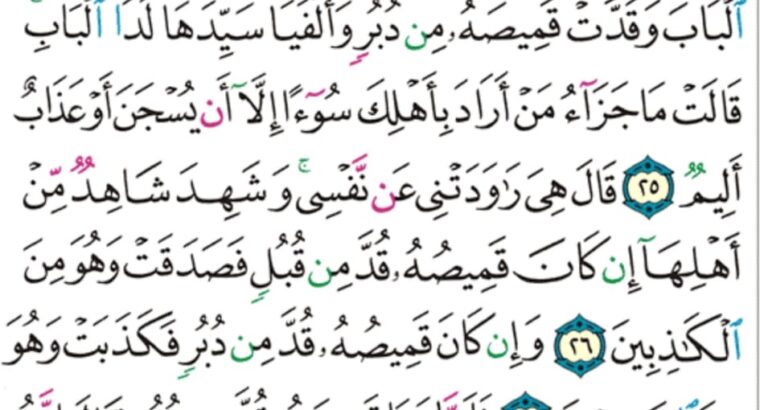 ٱلۡبَابَ وَقَدَّتۡ قَمِيصَهُۥ مِن دُبُرٍ وَأَلۡفَيَا سَيِّدَهَا لَدَا ٱلۡبَابِ
قَالَتۡ مَا جَزَآءُ مَنۡ أَرَادَ بِأَهۡلِكَ سُوٓءًا إِلَّآ أَن يُسۡجَنَ أَوۡ عَذَابٌ
أَلِيمٌ ٢٥ قَالَ هِيَ رَٰوَدَتۡنِي عَن نَّفۡسِيۚ وَشَهِدَ شَاهِدٌ مِّنۡ
أَهۡلِهَآ إِن كَانَ قَمِيصُهُۥ قُدَّ مِن قُبُلٍ فَصَدَقَتۡ وَهُوَ مِنَ
ٱلۡكَٰذِبِينَ ٢٦ وَإِن كَانَ قَمِيصُهُۥ قُدَّ مِن دُبُرٍ فَكَذَبَتۡ وَهُوَ